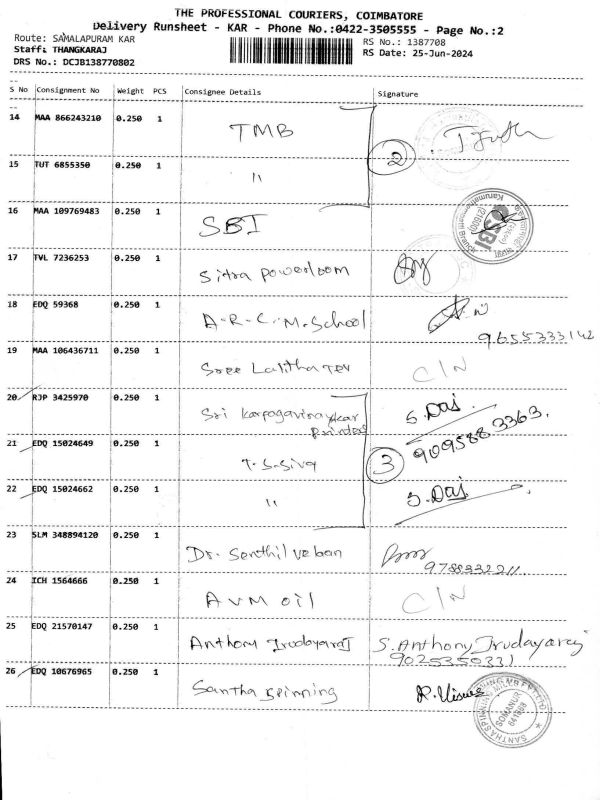 THE PROFESSIONAL COURIERS, COIMBATORE
Delivery Runsheet - KAR - Phone No.:0422-3505555 - Page No.:2
Route: SAMALAPURAM KAR
RS No.: 1387708
Staff: THANGKARAJ
RS Date: 25-Jun-2024
DRS No.: DCJB138770802
S No Consignment No Weight PCS Consignee Details Signature
14 MAA 866243210 0.250 1 TMB
2
15 TUT 6855350 0.250 1 "
16 MAA 109769483 0.250 1 SBI
SBI
17 TVL 7236253 0.250 1 Sitra Powerloom
18 EDQ 59368 0.250 1 A-R-C-M-School
9655333142
19 MAA 106436711 0.250 1 Sree Lalitha Tex C/N
20 RJP 3425970 0.250 1 Sri Karpagavinayakar S. Das
Printers 9095883363.
21 EDQ 15024649 0.250 1 T.S.Siva 3
22 EDQ 15024662 0.250 1 " S. Das
23 SLM 348894120 0.250 1 Dr. Senthil veban
9788332211.
24 ICH 1564666 0.250 1 AVM oil C/N
25 EDQ 21570147 0.250 1 Anthony Irudayaraj S. Anthony Irudayaraj
9025350331
26 EDQ 10676965 0.250 1 Santha Spinning
SANTHA SPINNING MILLS
SOMANUR
641668